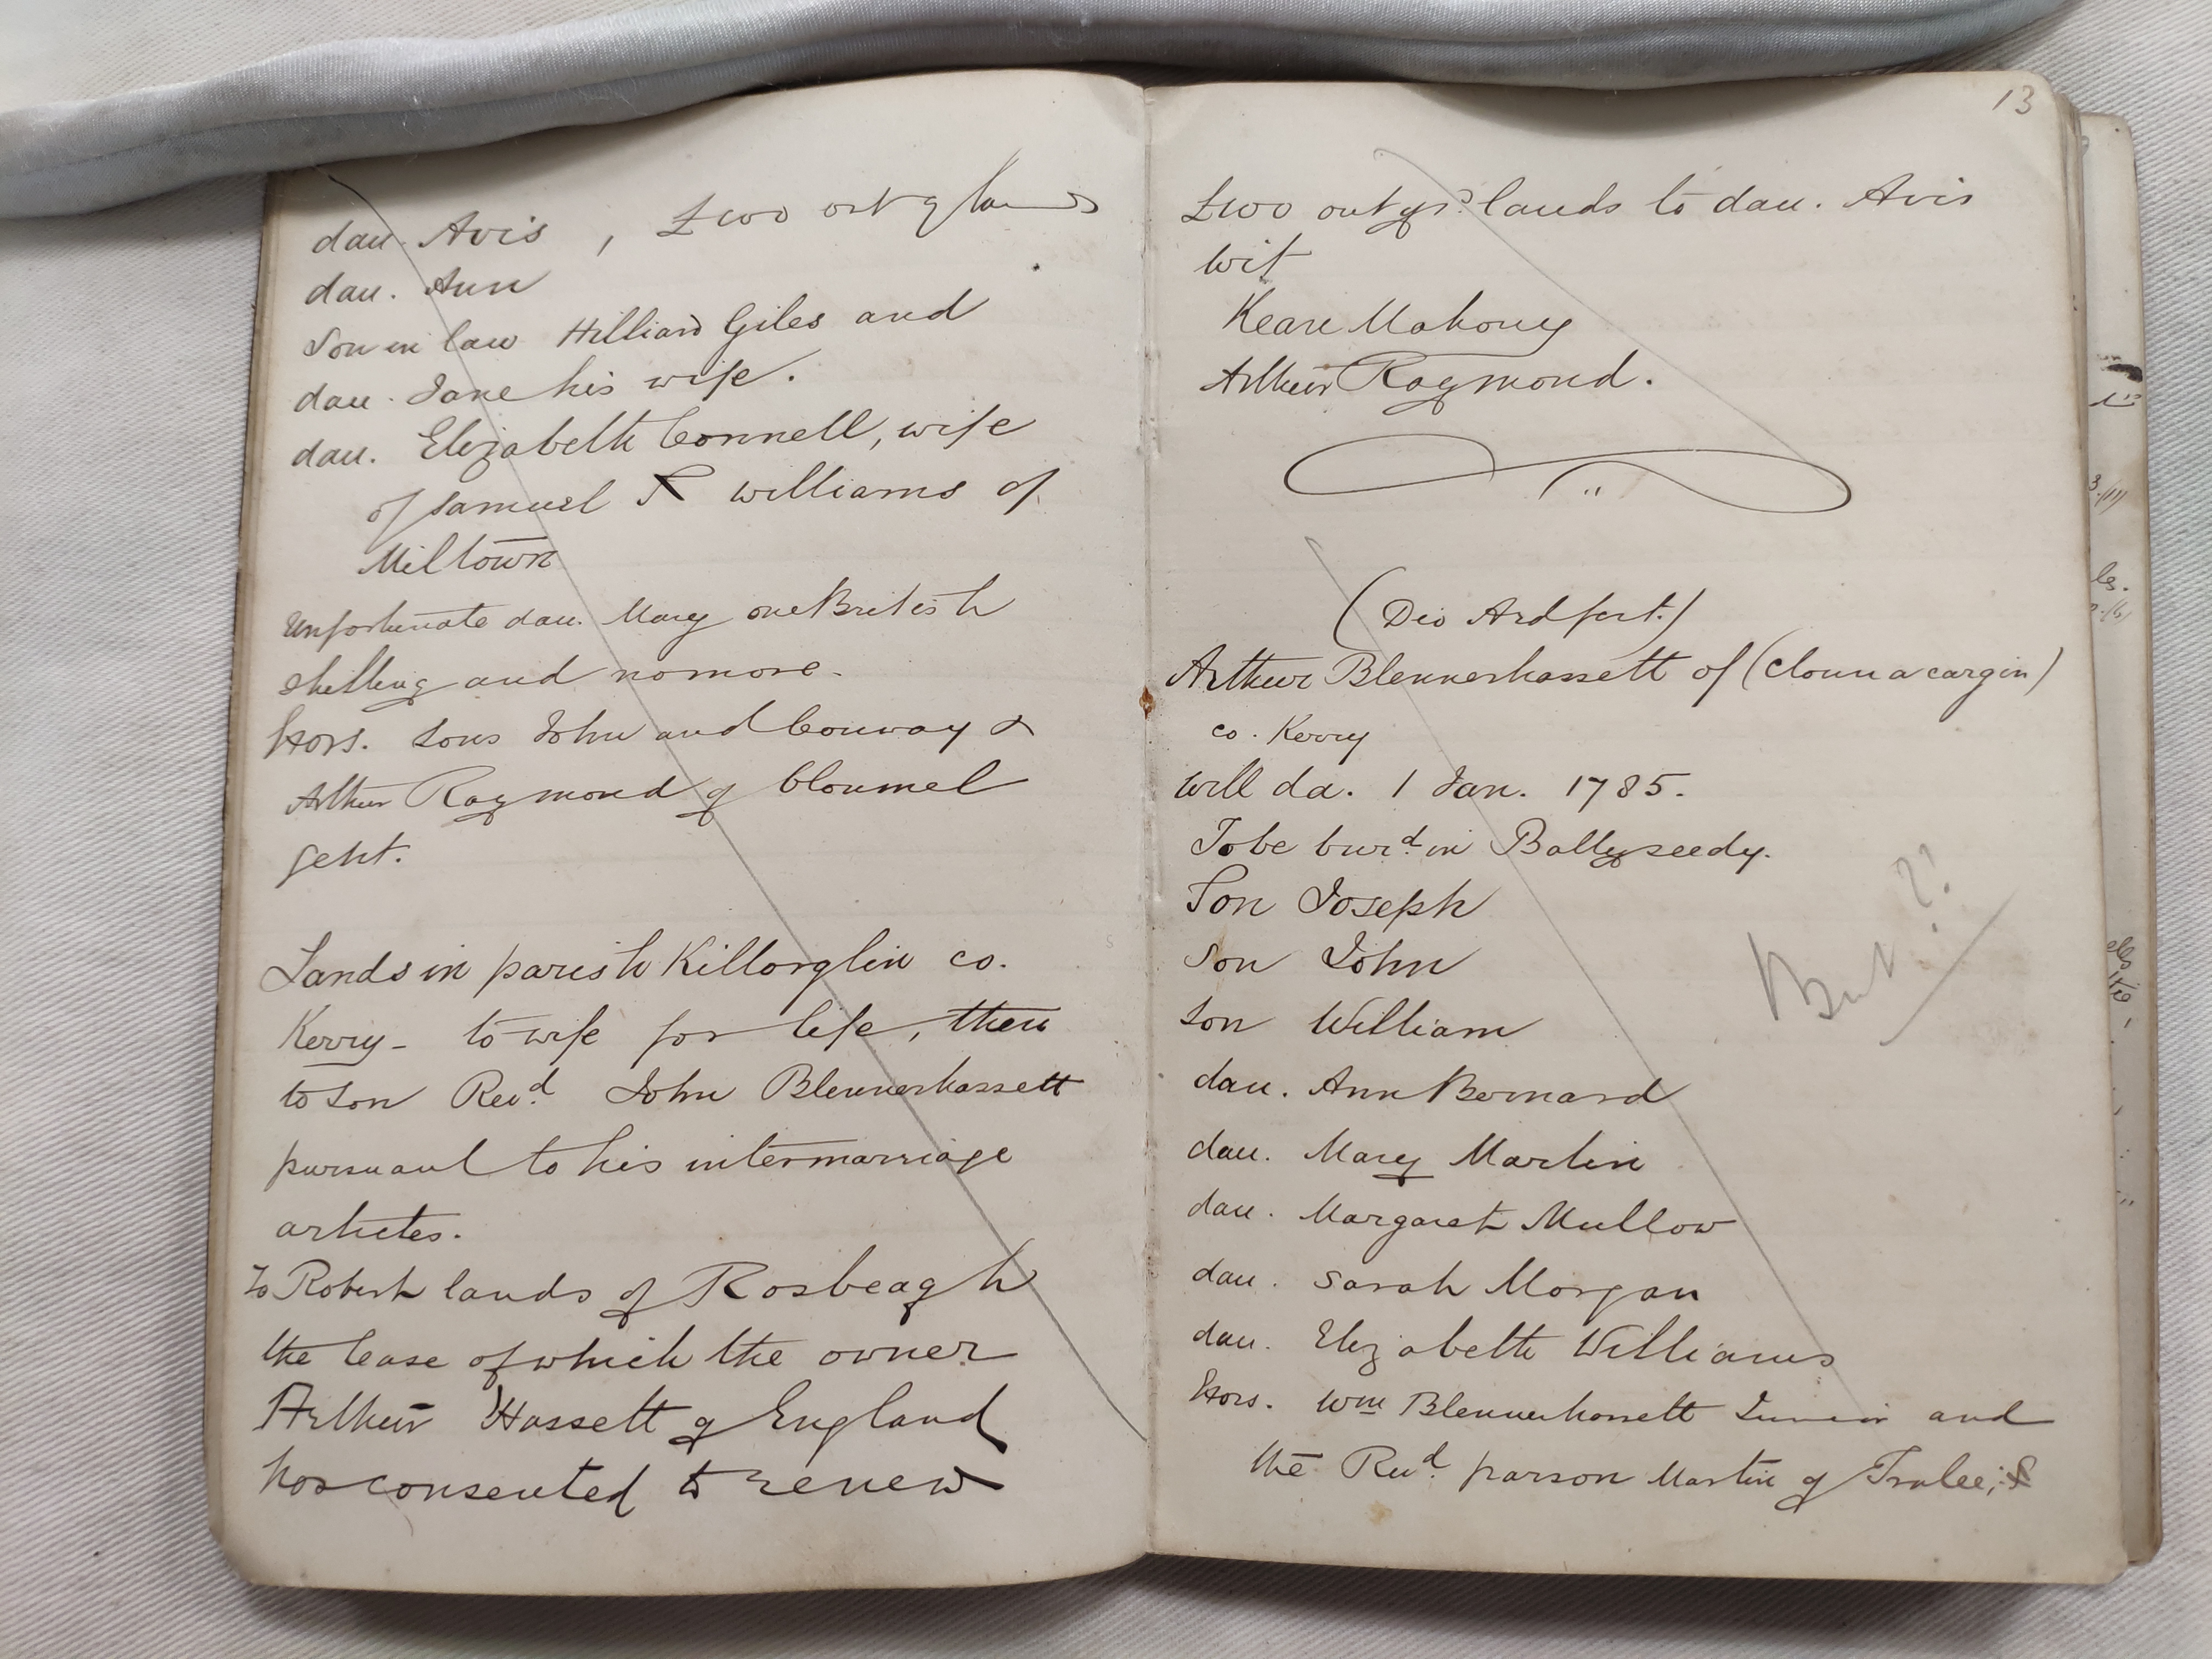 dau. Avis, £100 out of lands
dau. Ann
Son in law Hilliard Giles and
dau. Jane his wife.
dau. Elizabeth Connell, wife
of Samuel R Williams of
Miltown
Unfortunate dau. Mary one British
shilling and no more.
Exors. sons John and Conway &
Arthur Raymond of Clonmel
gent.
Lands in parish Killorglin co.
Kerry - to wife for life, then
to son Revd. John Blennerhassett
pursuant to his intermarriage
articles.
To Robert lands of Rosbeagh
the lease of which the owner
Arthur Hassett of England
has consented to renew
13
£100 out of sd. lands to dau. Avis
wit
Keane Mahony
Arthur Raymond.
(Dio Ardfert.)
Arthur Blennerhassett of (Clounacargin)
co. Kerry
will da. 1 Jan. 1785.
To be burd. in Ballyseedy.
Son Joseph
Son John
Son William
But??
dau. Ann Bernard
dau. Mary Martin
dau. Margaret Mullow
dau. Sarah Morgan
dau. Elizabeth Williams
Exors. Wm Blennerhassett Junior and
the Revd. parson Martin of Tralee; &